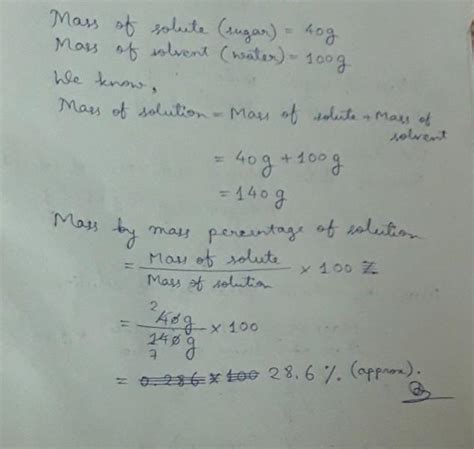 Mass of solute (sugar) = 40g
Mass of solvent (water) = 100g
We know,
Mass of solution = Mass of solute + Mass of solvent
= 40g + 100g
= 140g
Mass by mass percentage of solution
= Mass of solute / Mass of solution × 100 %
= 40g / 140g × 100
2
7
= 0.286 × 100 28.6 %. (approx).